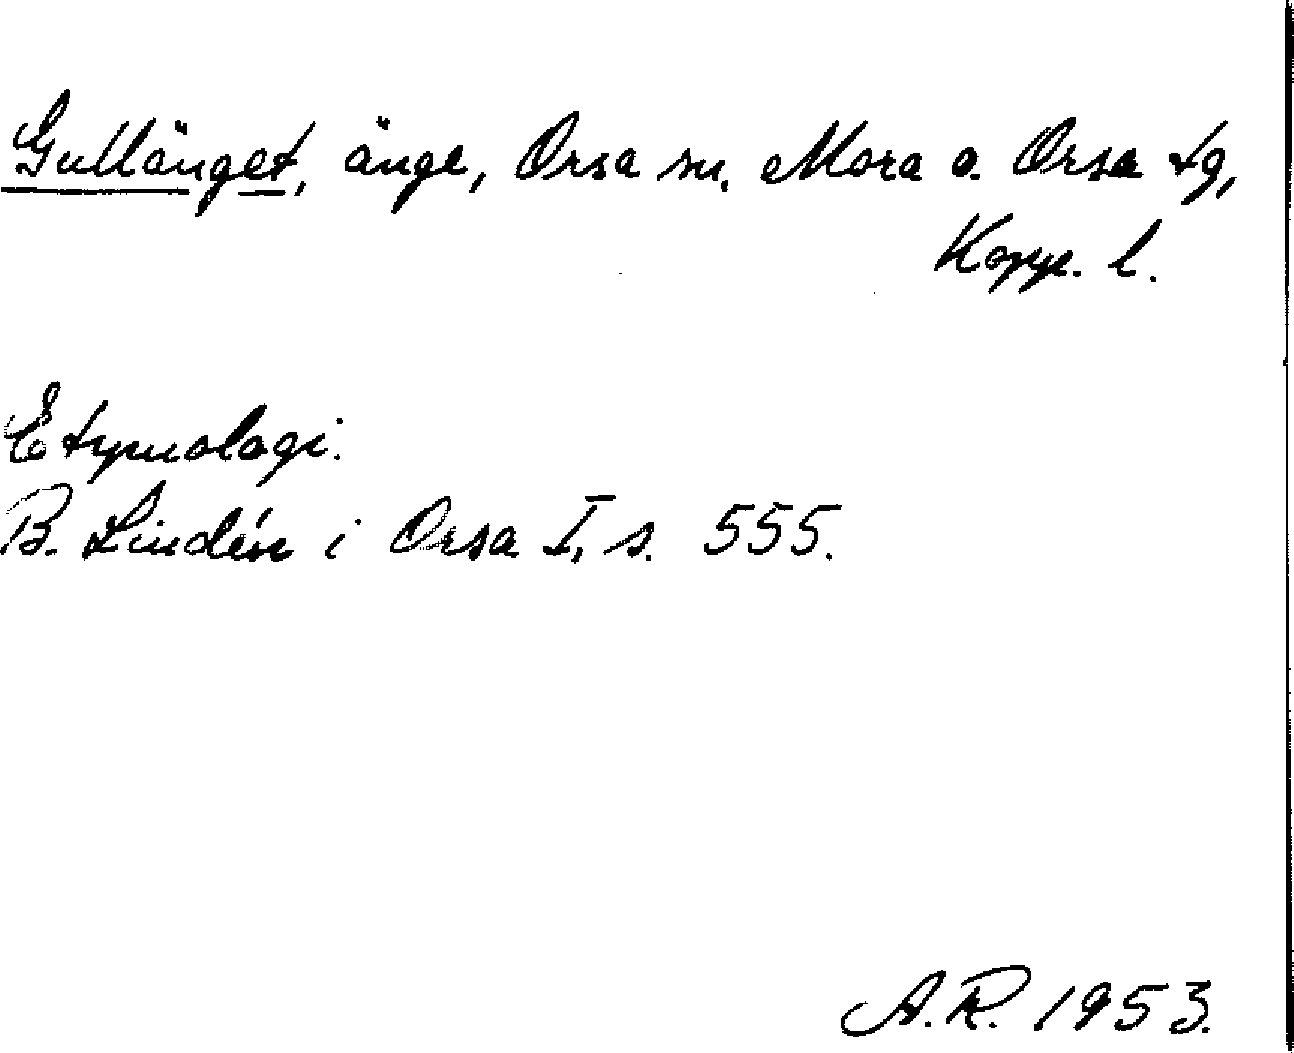 Gullänget, änge, Orsa sn, Mora o. Orsa tg,
Kopp. l.
Etymologi.
B. Lindén i Orsa I, s. 555.
A.R. 1953.